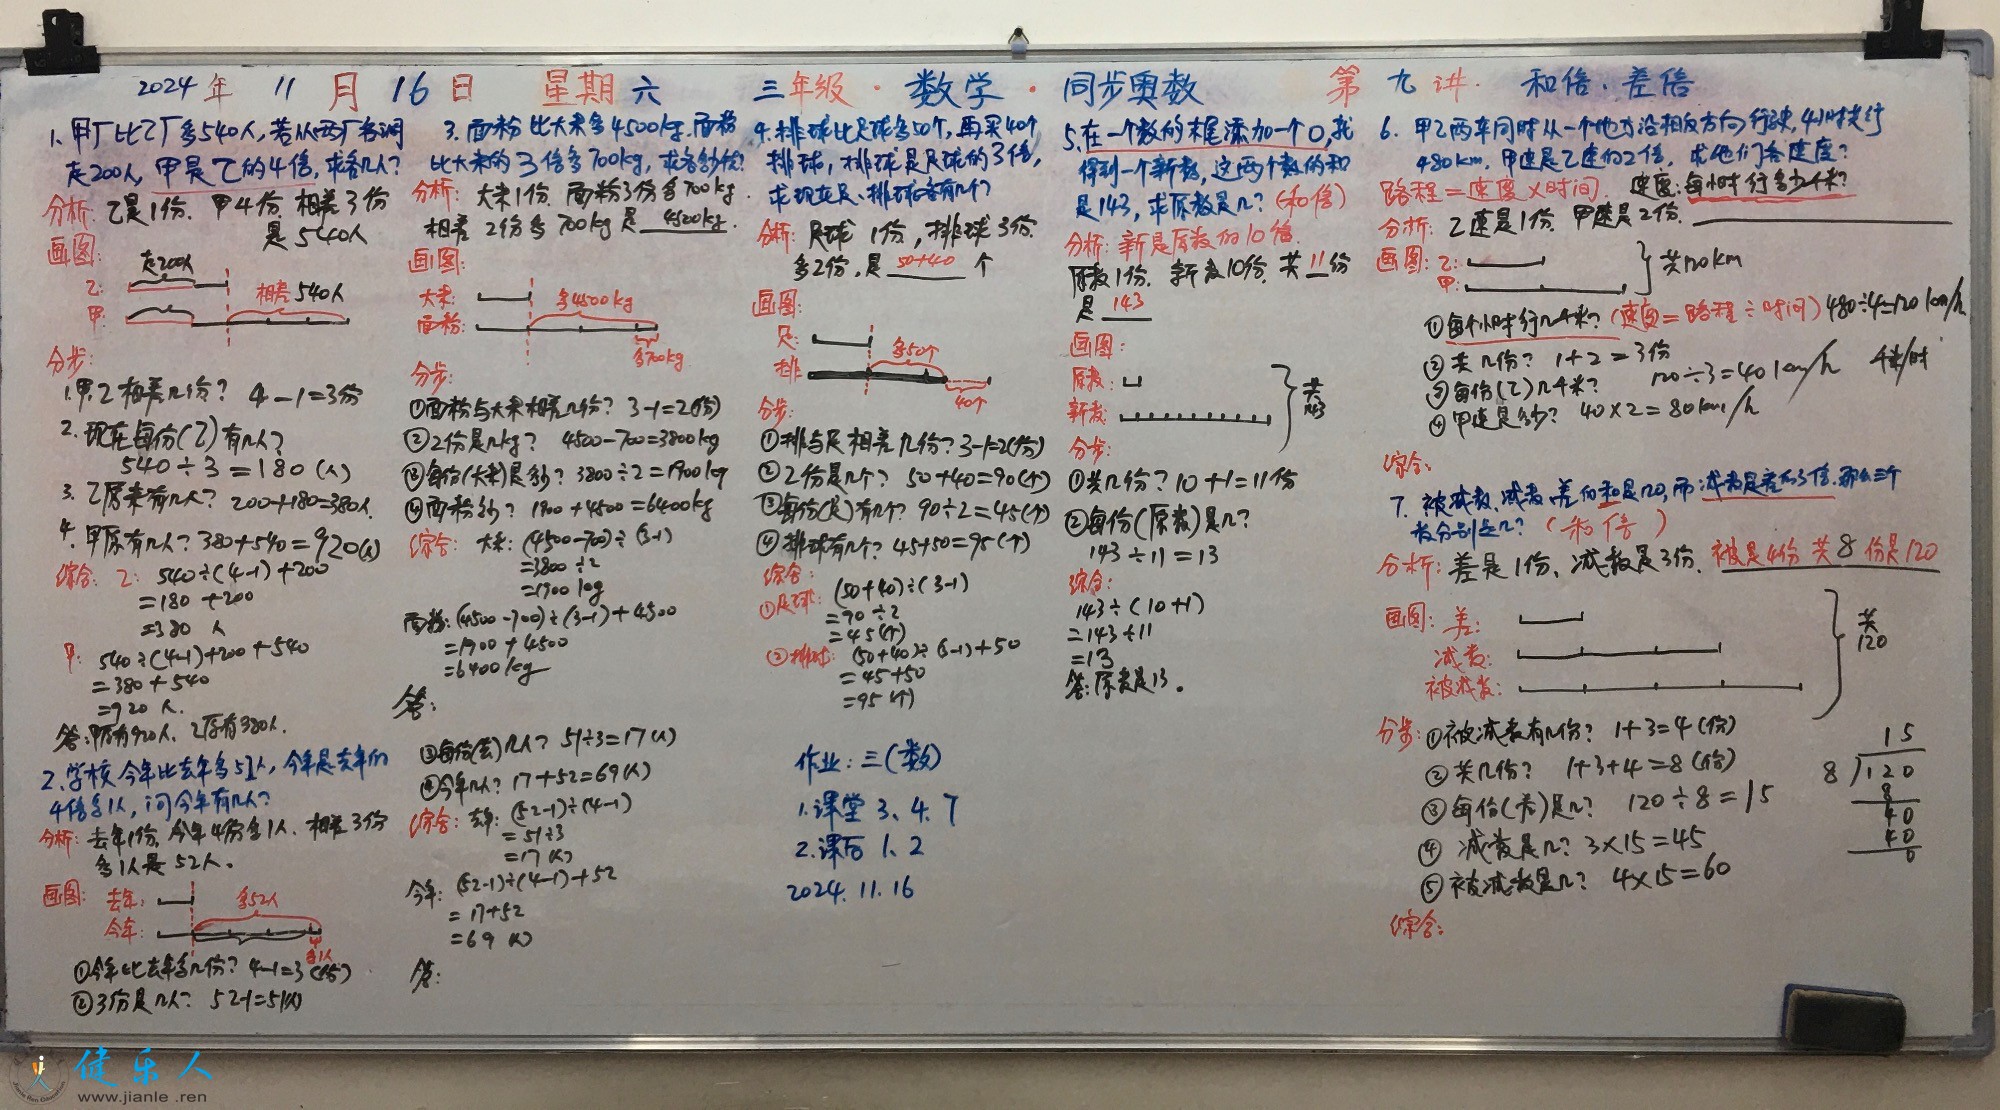 2024年 11月16日 星期六 三年级·数学·同步奥数 第九讲·和倍·差倍
1. 甲厂比乙厂多540人,若从两厂各调
走200人,甲是乙的4倍,求各几人?
分析:乙是1份. 甲4份. 相差3份
是540人
画图:
走200人
乙:
相差540人
甲:
分步:
1.甲.乙相差几份? 4-1=3份
2.现在每份(乙)有几人?
540÷3=180(人)
3.乙原来有几人? 200+180=380人.
4.甲原有几人?380+540=920(人)
综合: 乙: 540÷(4-1)+200
=180+200
=380 人
甲: 540÷(4-1)+200+540
=380+540
=920人.
答:甲厂有920人、乙厂有380人.
2.学校今年比去年多51人,今年是去年的
4倍多1人,问今年有几人?
分析:去年1份,今年4份多1人.相差3份
多1人是52人。
画图: 去年:
多52人
今年:
多1人
①今年比去年多几份? 4-1=3(份)
②3份是几人? 52-1=51(人)
3. 面粉比大米多4500kg.面粉
比大米的3倍多700kg,求各多少kg?
分析: 大米1份. 面粉3份多700kg.
相差2份多700kg是 4500kg.
画图:
大米:
多4500kg
面粉:
多700kg
分步:
①面粉与大米相差几份? 3-1=2(份)
②2份是几kg? 4500-700=3800kg
③每份(大米)是多少? 3800÷2=1900kg
④面粉多少? 1900+4500=6400kg
综合: 大米:(4500-700)÷(3-1)
=3800÷2
=1900kg
面粉:(4500-700)÷(3-1)+4500
=1900+4500
=6400kg
答:
③每份(去)几人? 51÷3=17(人)
④今年几人? 17+52=69(人)
综合: 去年:(52-1)÷(4-1)
=51÷3
=17(人)
今年:(52-1)÷(4-1)+52
=17+52
=69(人)
答:
4.排球比足球多50个,再买40个
排球,排球是足球的3倍,
求现在足、排球各有几个?
分析:足球1份,排球3份.
多2份,是 50+40 个
画图:
足:
多50个
排
40个
分步:
①排与足相差几份?3-1=2(份)
②2份是几个? 50+40=90(个)
③每份(足)有几个? 90÷2=45(个)
④排球有几个?45+50=95(个)
综合:
①足球: (50+40)÷(3-1)
=90÷2
=45(个)
②排球: (50+40)÷(3-1)+50
=45+50
=95(个)
作业:三(数)
1.课堂 3、4.7
2.课后 1、2
2024.11.16
5.在一个数的末尾添加一个0,就
得到一个新数,这两个数的和
是143,求原数是几?(和倍)
分析:新是原数的10倍.
原数1份. 新数10份. 共11份
是 143
画图:
原数:
新数:
共143
分步:
①共几份? 10+1=11份
②每份(原数)是几?
143÷11=13
综合:
143÷(10+1)
=143÷11
=13
答:原数是13。
6. 甲乙两车同时从一个地方沿相反方向行驶,4小时共行
480km.甲速是乙速的2倍, 求他们各速度?
路程=速度×时间. 速度:每小时行多少千米?
分析:乙速是1份. 甲速是2份.
画图:乙:
甲:
共120km
①每个小时行几千米?(速度=路程÷时间) 480÷4=120km/h
②共几份? 1+2=3份
③每份(乙)几千米? 120÷3=40km/h 千米/时
④甲速是多少? 40×2=80km/h
综合:
7. 被减数、减数、差的和是120,而减数是差的3倍.那么三个
数分别是几? (和倍)
分析:差是1份、减数是3份、被是4份 共8份是120
画图: 差:
减数:
被减数:
共120
分步:①被减数有几份? 1+3=4(份)
②共几份? 1+3+4=8(份)
③每份(差)是几? 120÷8=15
④减数是几? 3×15=45
⑤被减数是几? 4×15=60
综合:
15
8 120
8
40
40
0
健乐人
www.jianle.ren